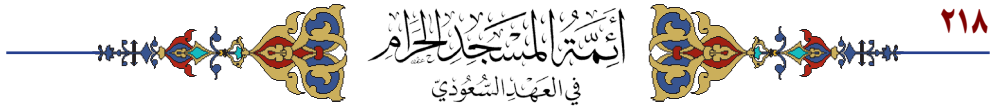 ٢١٨
أئمة المسجد الحرام
في العهد السعودي